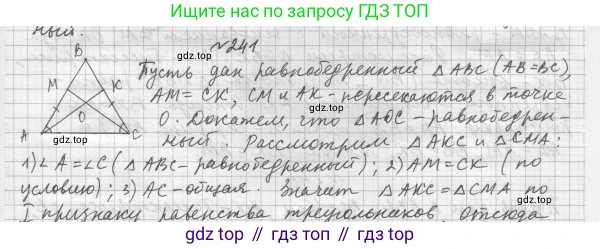 Ищите нас по запросу ГДЗ ТОП
ный.
№241
B
Пусть дан равнобедренный △ABC (AB=BC),
M
K
AM=CK, CM и AK-пересекаются в точке
O
O. Докажем, что △AOC-равнобедрен-
A
C
gdz.top
gdz.top
gdz.top
gdz.top
gdz.top
ный. Рассмотрим △AKC и △CMA:
1) ∠A=∠C (△ABC-равнобедренный); 2) AM=CK (по
условию); 3) AC-общая. Значит △AKC=△CMA по
I признаку равенства треугольников. Отсюда
gdz.top // gdz.top // gdz.top